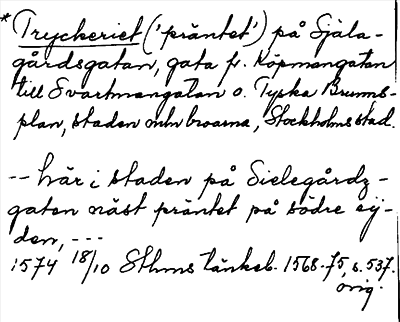 * Tryckeriet ('präntet') på Själa-
gårdsgatan, gata fr. Köpmangatan
till Svartmangatan o. Tyska Brunns-
plan, staden mln broarna, Stockholms stad.
-- här i staden på Sielegårdz-
gaten näst präntet på södre sy-
den, ---
1574 18/10 Sthms tänkeb. 1568-75, s. 537.
orig.